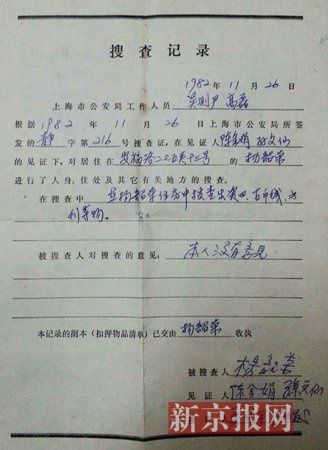 搜查记录
1982年11月26日
上海市公安局工作人员 吴则尹
根据1982年11月26日上海市公安局所签
发的静字第216号搜查证，在见证人陈金娟 孙文仙
的见证下，对居住在安福路 的杨韶荣
进行了人身、住处及其它有关地方的搜查。
在搜查中 在杨韶荣住房中搜查出
等物。
被搜查人对搜查的意见：本人没有意见
本记录的副本（扣押物品清单）已交由杨韶荣收执
被搜查人 杨韶荣
见证人 陈金娟 孙文仙
新京报网